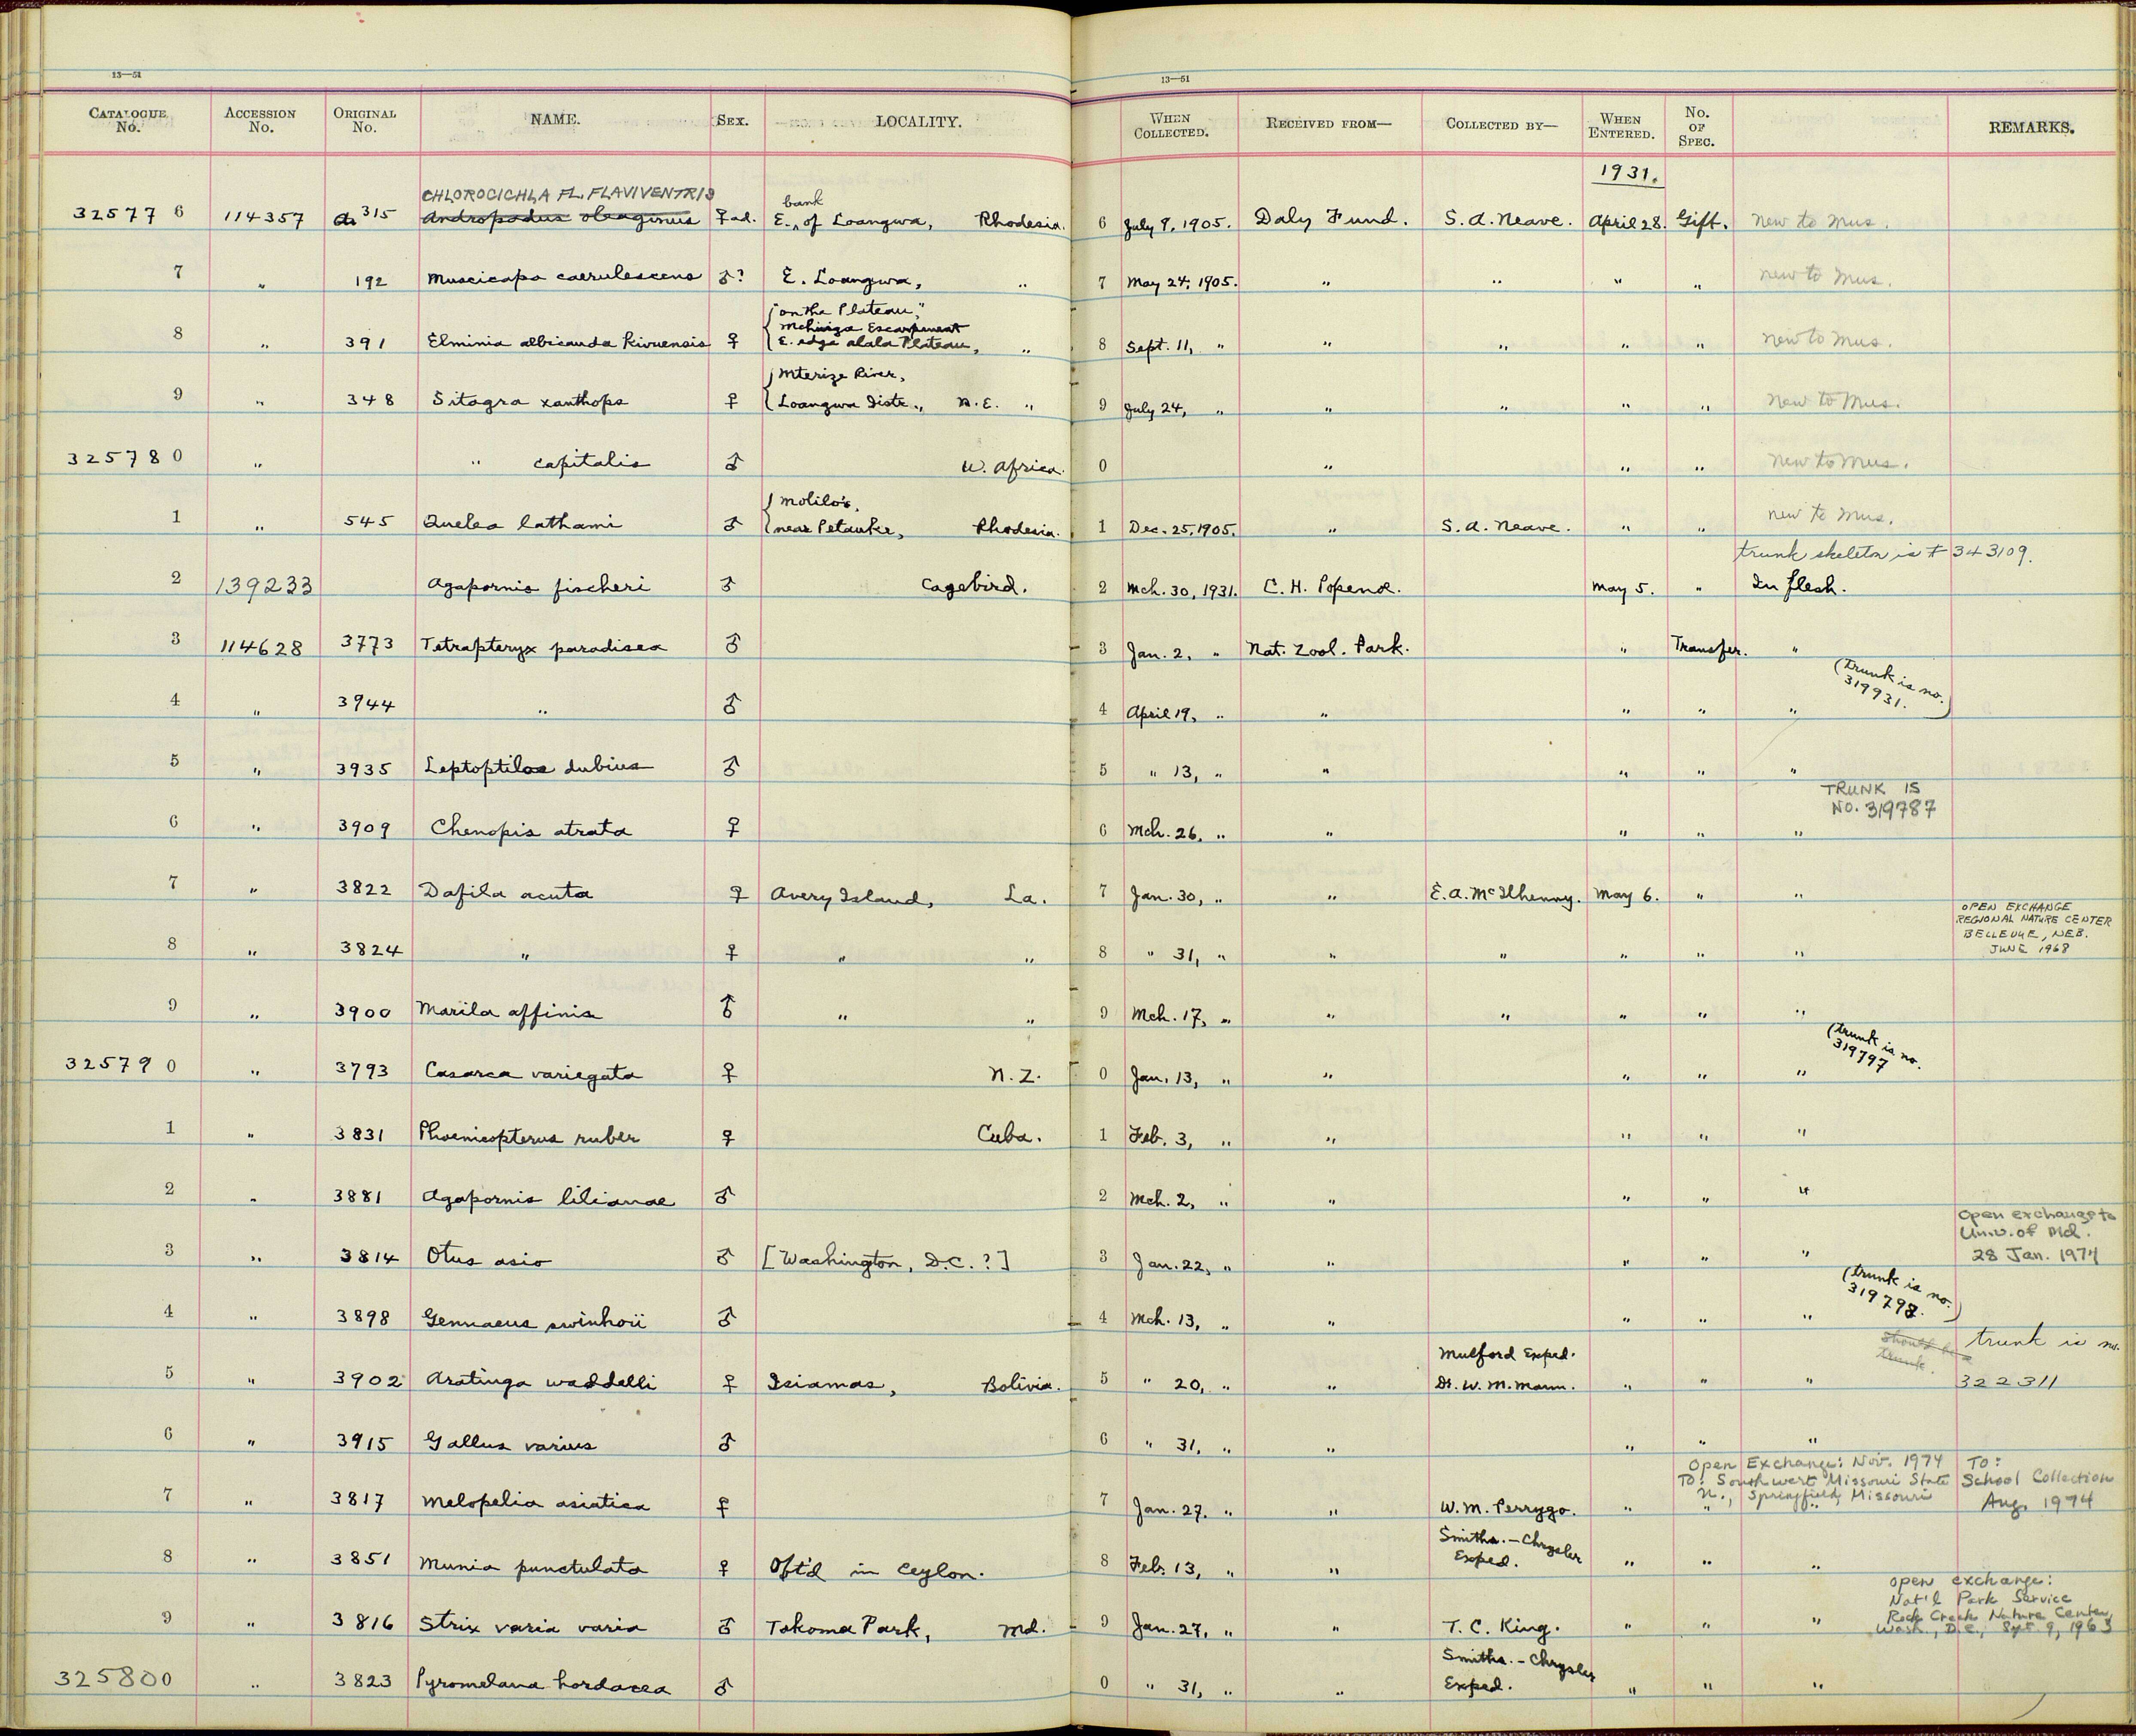 13—51
13—51
CATALOGUE No. ACCESSION No. ORIGINAL No. NAME. SEX. LOCALITY. WHEN COLLECTED. RECEIVED FROM— COLLECTED BY— WHEN ENTERED. No. OF SPEC. REMARKS.
1931.
CHLOROCICHLA FL. FLAVIVENTRIS
bank
32577 6 114357 315 Andropadus oleaginus ♀ad. E. of Loangwa, Rhodesia. 6 July 9, 1905. Daly Fund. S. A. Neave. April 28. Gift. new to Mus.
7 " 192 Muscicapa caerulescens ♂? E. Loangwa, " 7 May 24, 1905. " " " " new to Mus.
"on the Plateau,"
Mchinga Escarpment
8 " 391 Elminia albicauda kivuensis ♀ E. edge alala Plateau, " 8 Sept. 11, " " " " " new to Mus.
Mterize River,
9 " 348 Sitagra xanthops ♀ Loangwa Distr., N.E. " 9 July 24, " " " " " new to Mus.
325780 " " capitalis ♂ W. Africa. 0 " " " new to Mus.
Molilo's,
1 " 545 Quelea lathami ♂ near Petauke, Rhodesia. 1 Dec. 25, 1905. " S. A. Neave. " " new to Mus.
trunk skeleton is # 343109.
2 139233 Agapornis fischeri ♂ Cagebird. 2 Mch. 30, 1931. C. H. Popenoe. May 5. " In flesh.
3 114628 3773 Tetrapteryx paradisea ♂ 3 Jan. 2, " Nat. Zool. Park. " Transfer. "
(trunk is no.
319931.)
4 " 3944 " ♂ 4 April 19, " " " " "
5 " 3935 Leptoptilos dubius ♂ 5 " 13, " " " " "
TRUNK IS
NO. 319787
6 " 3909 Chenopis atrata ♀ 6 Mch. 26, " " " " "
7 " 3822 Dafila acuta ♀ Avery Island, La. 7 Jan. 30, " " E. A. McIlhenny. May 6. " "
OPEN EXCHANGE
REGIONAL NATURE CENTER
BELLEVUE, NEB.
JUNE 1968
8 " 3824 " ♀ " " 8 " 31, " " " " " "
9 " 3900 Marila affinis ♂ " " 9 Mch. 17, " " " " " "
(trunk is no.
319797
325790 " 3793 Casarca variegata ♀ N. Z. 0 Jan. 13, " " " " "
1 " 3831 Phoenicopterus ruber ♀ Cuba. 1 Feb. 3, " " " " "
2 " 3881 Agapornis lilianae ♂ 2 Mch. 2, " " " " "
Open exchange to
Univ. of Md.
28 Jan. 1974
3 " 3814 Otus asio ♂ [Washington, D.C.?] 3 Jan. 22, " " " " "
(trunk is no.
319792.)
4 " 3898 Gennaeus swinhoii ♂ 4 Mch. 13, " " " " "
should be
trunk
trunk is no.
322311
Mulford Exped.
5 " 3902 Aratinga weddelli ♀ Isiamas, Bolivia. 5 " 20, " " Dr. W. M. Mann. " " "
6 " 3915 Gallus varius ♂ 6 " 31, " " " " "
Open Exchange: Nov. 1974
To: Southwest Missouri State
U., Springfield, Missouri
To:
School Collection
Aug. 1974
7 " 3817 Melopelia asiatica ♀ 7 Jan. 27, " " W. M. Perrygo. " " "
Smiths.-Chrysler
8 " 3851 Munia punctulata ♀ Obt'd in Ceylon. 8 Feb. 13, " " Exped. " " "
open exchange:
Nat'l Park Service
Rock Creek Nature Center,
Wash., D.C., Sept. 9, 1963
9 " 3816 Strix varia varia ♂ Takoma Park, Md. 9 Jan. 27, " " T. C. King. " " "
Smiths.-Chrysler
325800 " 3823 Pyromelana hordacea ♂ 0 " 31, " " Exped. " " "